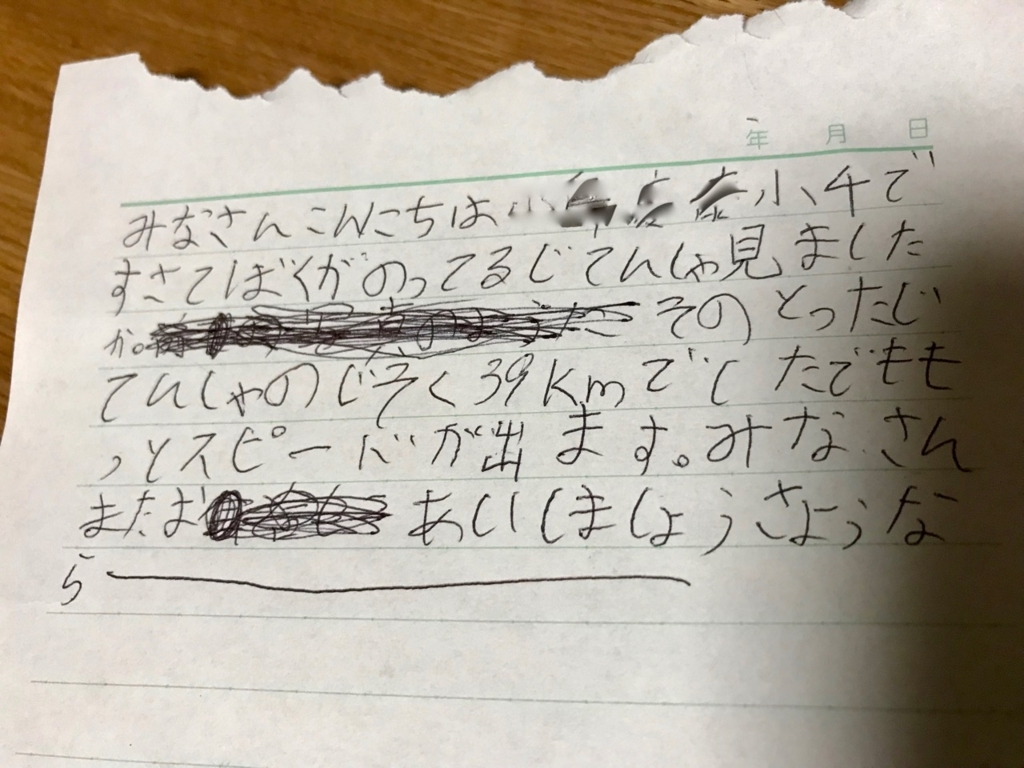 年 月 日
みなさんこんにちは 小4で
すさてぼくがのってるじてんしゃ見ました
か。 そのとったじ
てんしゃのじそく39Kmでしたでもも
っとスピードが出ます。みなさん
またお あいしましょうさような
ら